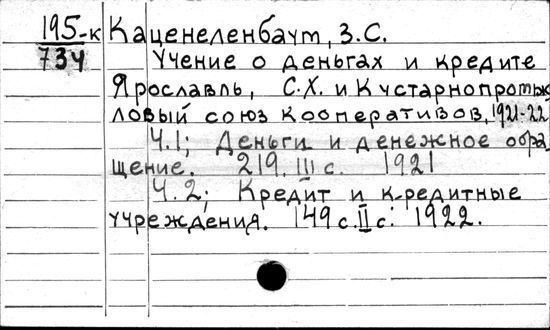 195-к Каценеленбаум, З.С.
734 Учение о деньгах и кредите
Ярославль, С.Х. и Кустарнопромыс
ловый союз кооперативов, 1921-22
Ч.1; Деньги и денежное обра
щение. 219. III с. 1921
Ч.2; Кредит и кредитные
учреждения. 149 с. II с. 1922.